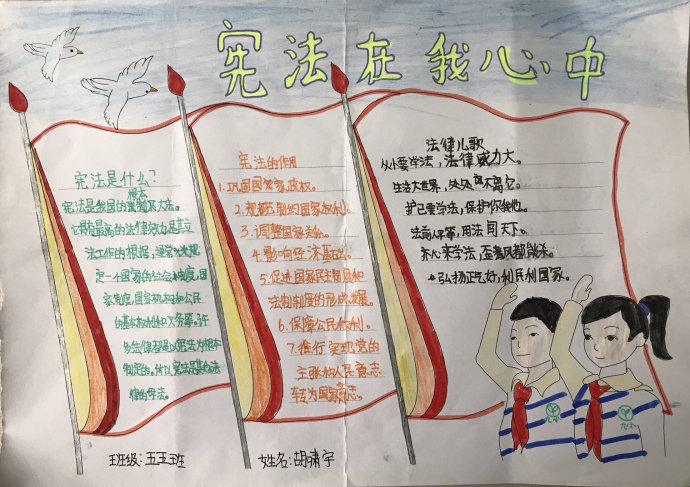 宪法在我心中
宪法是什么?
根本
宪法是我国的根本大法。
它拥有最高的法律效力是立
法工作的根据,通常规
定一个国家的社会制度,国
家制度,国家机构和公民
的基本权利和义务等,
法律都是以宪法为根本
制定的。所以宪法是其他法
律的母法。
宪法的作用
1.巩固国家政权。
2.规范制约国家权利。
3.调整国家关系。
4.影响经济基础。
5.促进国家民主自由和
法制制度的形成发展。
6.保障公民权利。
7.推行实现党的
主张和人民意志
转为国家意志。
法律儿歌
从小要学法,法律威力大。
生活大世界,处处离不离它。
护己要学法,保护你我他。
法前人平等,用法闯天下。
齐心来学法,歪风都能杀。
弘扬正气好,利民利国家。
班级:五五班
姓名:胡啸宇